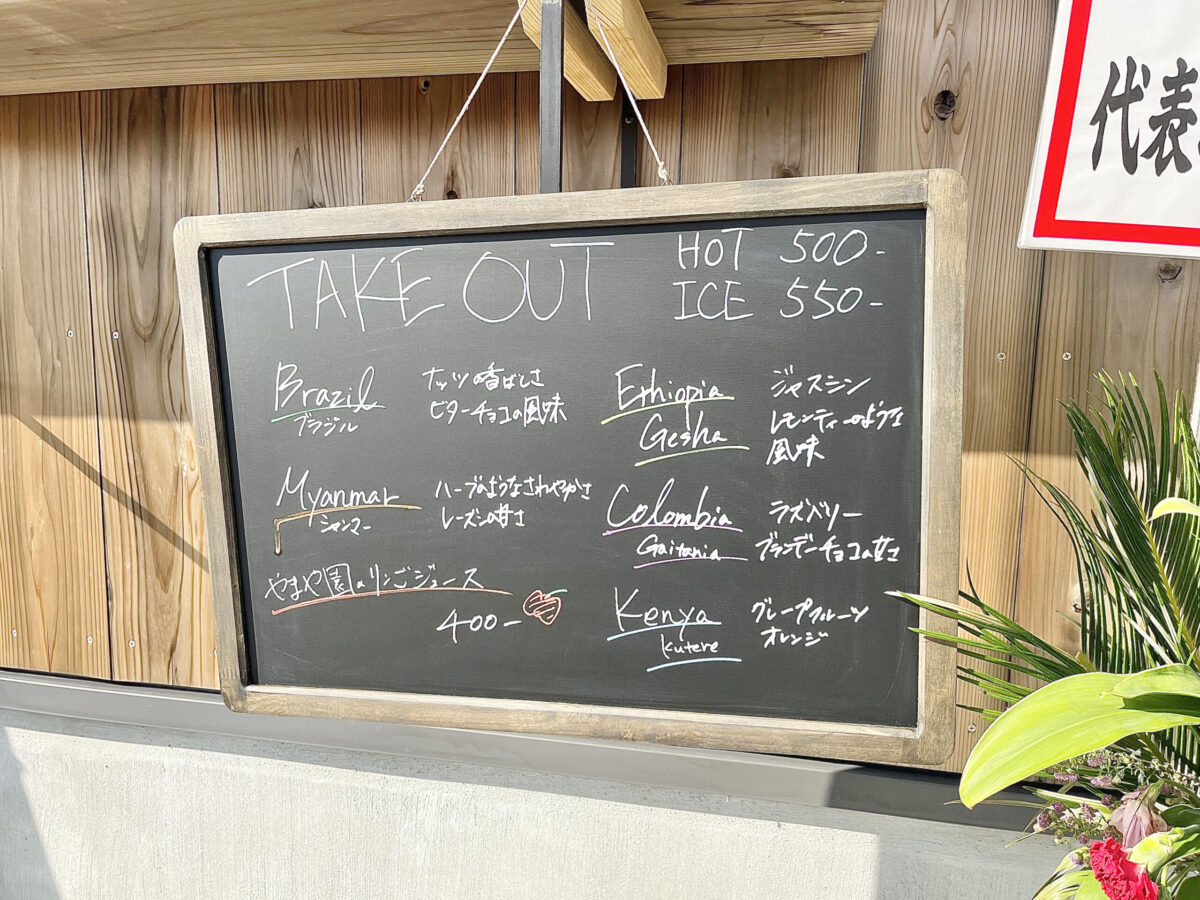 TAKE OUT
HOT 500-
ICE 550-
Brazil
ブラジル
ナッツの香ばしさ
ビターチョコの風味
Myanmar
シャンマー
ハーブのようなさわやかさ
レーズンの甘さ
やまや園のりんごジュース
400-
Ethiopia
Gesha
ジャスミン
レモンティーのような
風味
Colombia
Gaitania
ラズベリー
ブランデーチョコの甘さ
Kenya
kutere
グレープフルーツ
オレンジ
代表